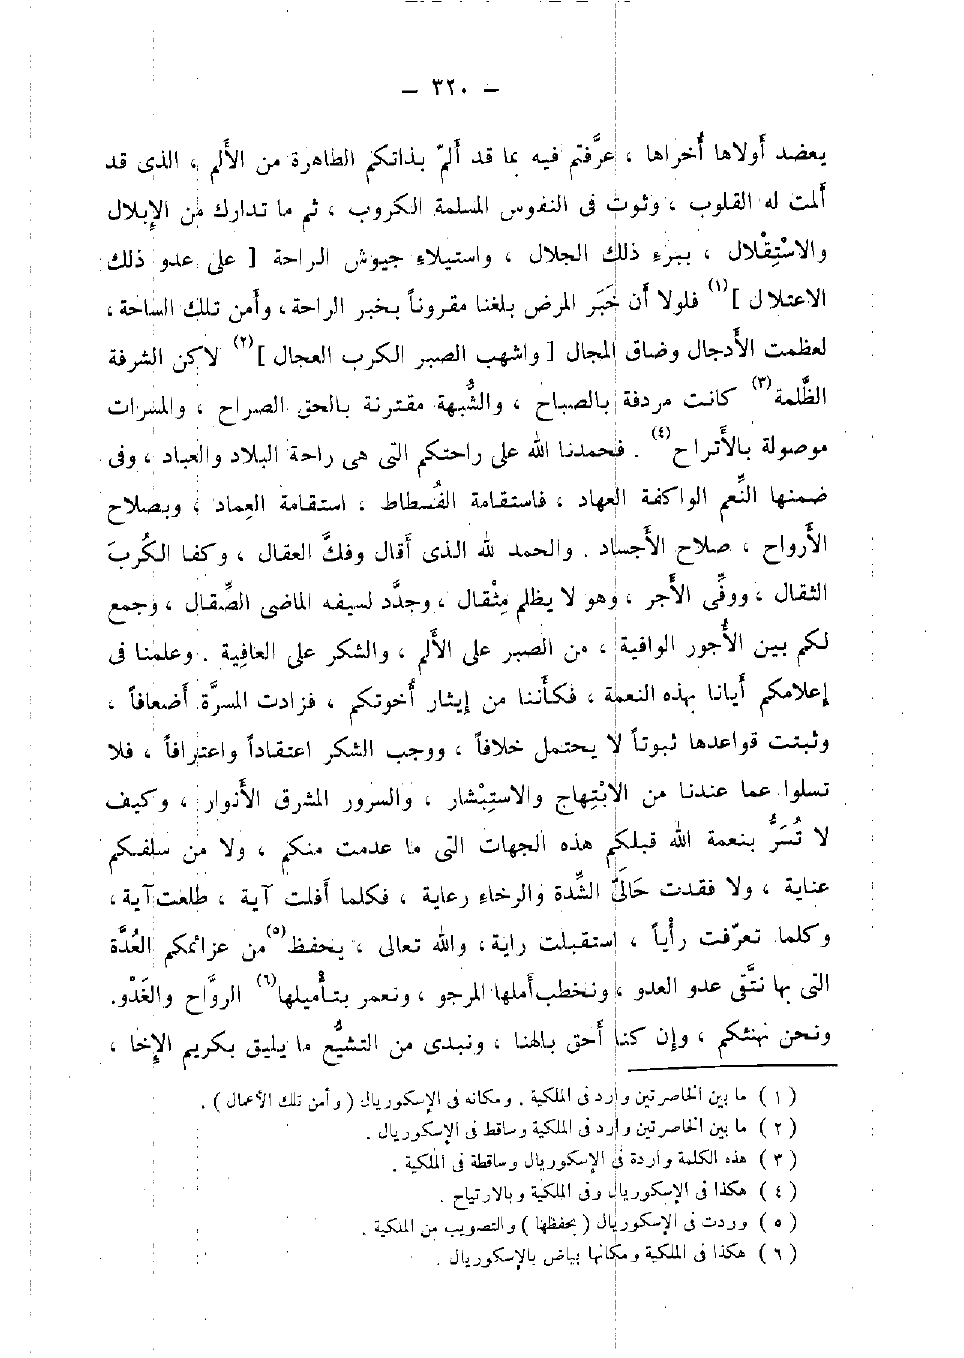 — ٣٢٠ —
يعضد أولاها أُخراها ، عرَّفتم فيه بما قد ألمّ بذاتكم الطاهرة من الألم ، الذى قد
ألمت له القلوب ، وثوت فى النفوس المسلمة الكروب ، ثم ما تدارك من الإبلال
والاسْتِقْلال ، ببرء ذلك الجلال ، واستيلاء جيوش الراحة [ على عدو ذلك
الاعتلال ](١) فلولا أن خَبَر المرض بلغنا مقروناً بخبر الراحة ، وأمن تلك الساحة ،
لعظمت الأدجال وضاق المجال [ واشهب الصبر الكرب العجال ](٢) لاكن الشرفة
الظَّلمة(٣) كانت مردفة بالصباح ، والشُّبهة مقترنة بالحق الصراح ، والمسرات
موصولة بالأتراح(٤) . فحمدنا الله على راحتكم التى هى راحة البلاد والعباد ، وفى
ضمنها النِّعم الواكفة العهاد ، فاستقامة الفُسطاط ، استقامة العِماد ، وبصلاح
الأرواح ، صلاح الأجساد . والحمد لله الذى أقال وفكَّ العقال ، وكفا الكُربَ
الثقال ، ووفِّى الأجر ، وهو لا يظلم مِثْقال ، وجدَّد لسيفه الماضى الصِّقال ، وجمع
لكم بين الأُجور الواقية ، من الصبر على الألم ، والشكر على العافِية . وعلمنا فى
إعلامكم أيانا بهذه النعمة ، فكأننا من إيثار أخوتكم ، فزادت المسرَّة أضعافاً ،
وثبتت قواعدها ثبوتاً لا يحتمل خلافاً ، ووجب الشكر اعتقاداً واعترافاً ، فلا
تسلوا عما عندنا من الابْتِهاج والاستِبْشار ، والسرور المشرق الأنوار ، وكيف
لا تُسَرُّ بنعمة الله قبلكم هذه الجهات التى ما عدمت منكم ، ولا من سلفكم
عناية ، ولا فقدت حَالَىِّ الشِّدة والرخاء رعاية ، فكلما أفلت آية ، طلعت آية ،
وكلما تعرّفت رأياً ، استقبلت راية ، والله تعالى ، يحفظ(٥) من عزائمكم العُدَّة
التى بها نتَّقى عدو العدو ، ونخطب أملها المرجو ، ونعمر بتأميلها(٦) الرواح والغَدْو.
ونحن نهنئكم ، وإن كنا أحق بالهنا ، ونبدى من التشيُّع ما يليق بكريم الإخا ،
( ١ ) ما بين الخاصرتين وارد فى الملكية . ومكانه فى الإسكوريال ( وأمن تلك الأعمال ) .
( ٢ ) ما بين الخاصرتين وارد فى الملكية وساقط فى الإسكوريال .
( ٣ ) هذه الكلمة واردة فى الإسكوريال وساقطة فى الملكية .
( ٤ ) هكذا فى الإسكوريال وفى الملكية وبالارتياح .
( ٥ ) وردت فى الإسكوريال ( بحفظها ) والتصويب من الملكية .
( ٦ ) هكذا فى الملكية ومكانها بياض بالإسكوريال .